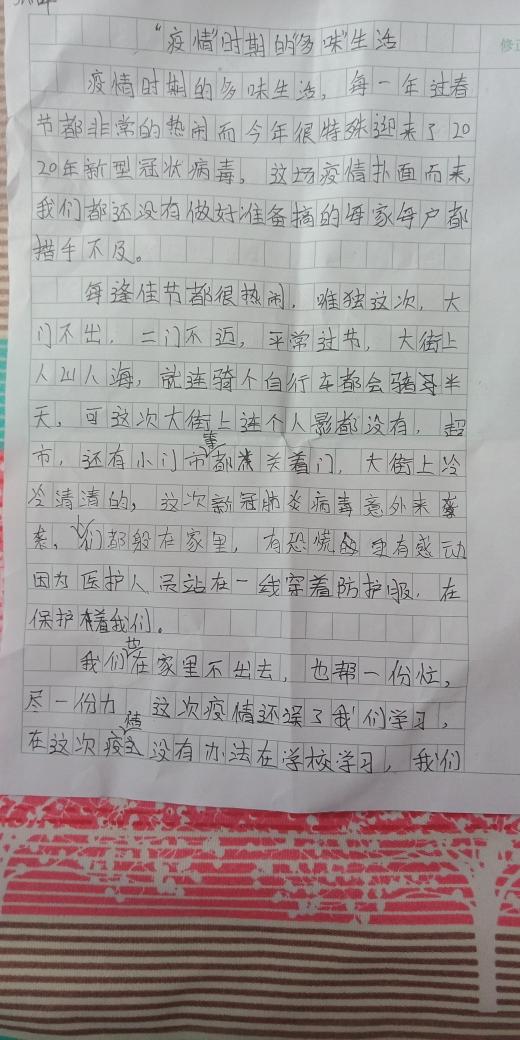 “疫情”时期的“多味”生活
疫情时期的多味生活，每一年过春
节都非常的热闹而今年很特殊迎来了20
20年新型冠状病毒，这场疫情扑面而来，
我们都还没有做好准备搞的每家每户都
措手不及。
每逢佳节都很热闹，唯独这次，大
门不出，二门不迈，平常过节，大街上
人山人海，就连骑个自行车都会骑半
天，可这次大街上连个人影都没有，超
市，还有小门市都关着门，大街上冷
冷清清的，这次新冠肺炎病毒意外来
袭，们都般在家里，有恐慌更有感动
因为医护人员站在一线穿着防护服，在
保护着我们。
我们也在家里不出去，也帮一份忙，
尽一份力，这次疫情还误了我们学习，
在这次疫情没有办法在学校学习，我们
修正